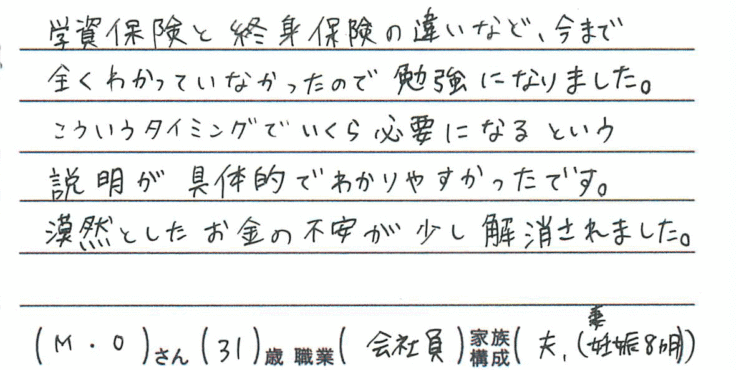 学資保険と終身保険の違いなど、今まで
全くわかっていなかったので勉強になりました。
こういうタイミングでいくら必要になるという
説明が具体的でわかりやすかったです。
漠然としたお金の不安が少し解消されました。
(M・O)さん(31)歳 職業(会社員)家族構成(夫、妻(妊娠8か月))